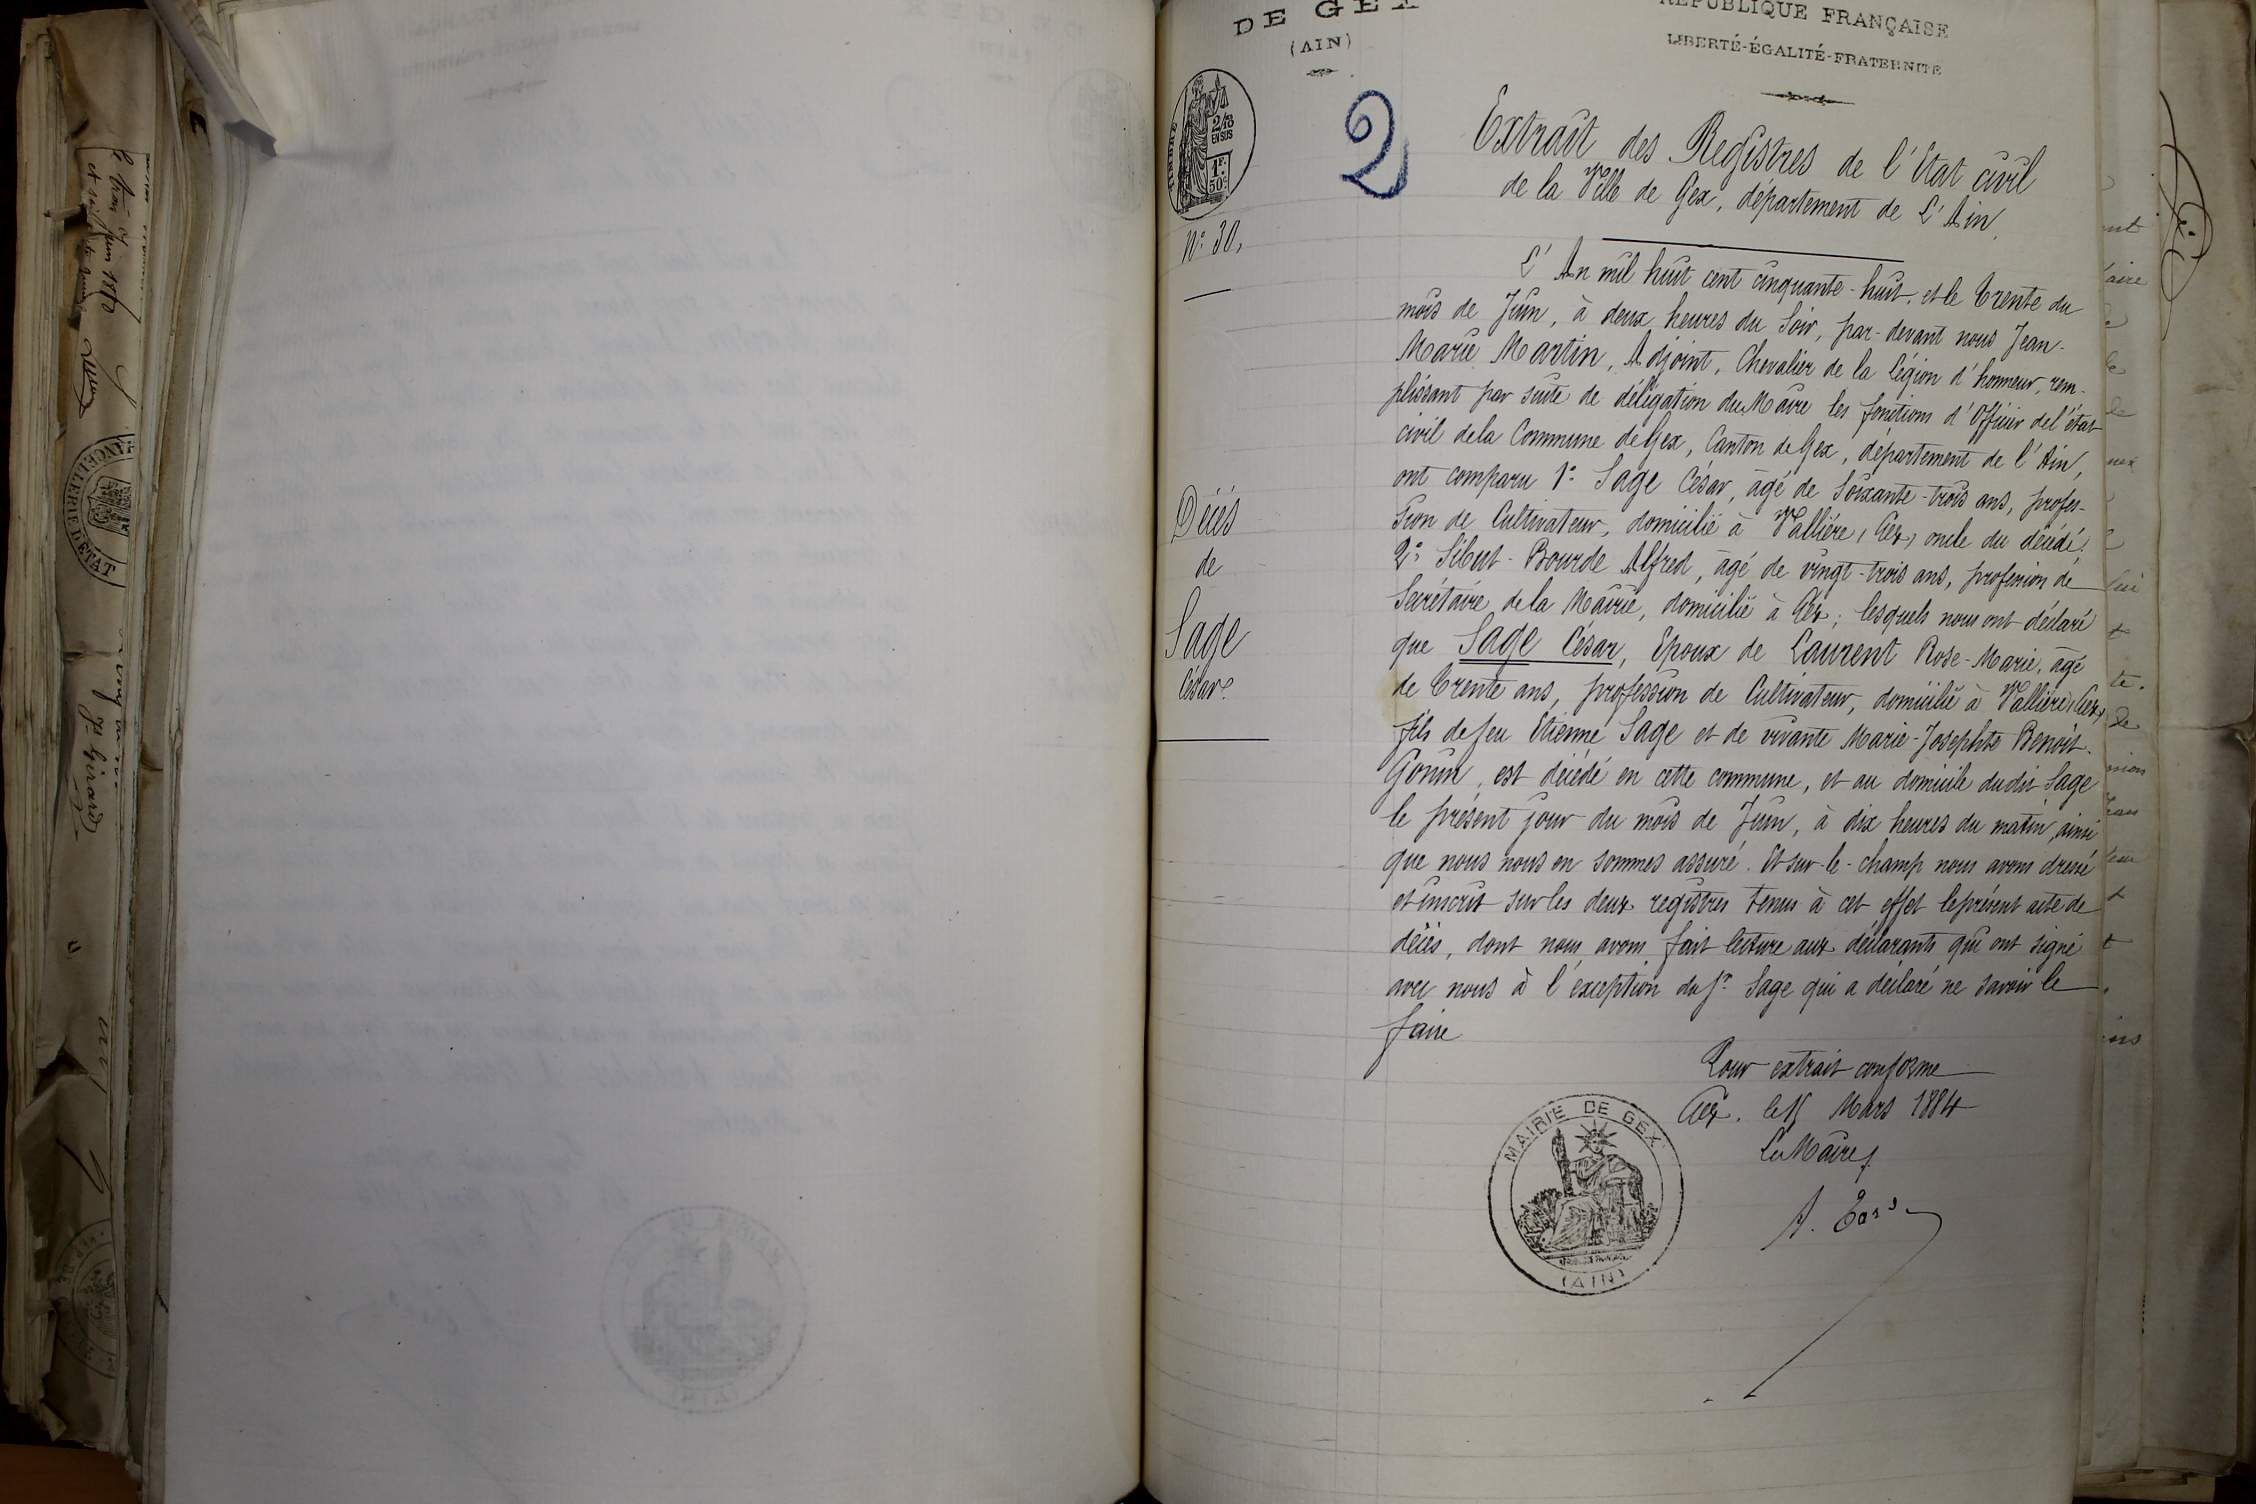 DE GEX
(AIN)
RÉPUBLIQUE FRANÇAISE
LIBERTÉ-ÉGALITÉ-FRATERNITÉ
TIMBRE
2/10
EN SUS
1F.
50c.
2
Extrait des Registres de l'Etat civil
de la Ville de Gex, département de L'Ain.
N° 30.
Décès
de
Sage
César.
L'An mil huit cent cinquante-huit, et le trente du
mois de Juin, à deux heures du Soir, par-devant nous Jean-
Marie Martin, Adjoint, Chevalier de la légion d'honneur, rem-
plissant par suite de délégation du Maire les fonctions d'Officier de l'état
civil de la Commune de Gex, Canton de Gex, département de l'Ain,
ont comparu 1° Sage César, âgé de Soixante-trois ans, profes-
sion de Cultivateur, domicilié à Vallière, Gex, oncle du décédé.
2° Sibut-Bourde Alfred, âgé de vingt-trois ans, profession de
Secrétaire de la Mairie, domicilié à Gex; lesquels nous ont déclaré
que Sage César, Epoux de Laurent Rose-Marie, âgé
de trente ans, profession de Cultivateur, domicilié à Vallière, Gex,
fils de feu Etienne Sage et de vivante Marie-Josephte Benoit-
Gonin, est décédé en cette commune, et au domicile dudit Sage
le présent jour du mois de Juin, à dix heures du matin, ainsi
que nous nous en sommes assuré. Et sur-le-champ nous avons dressé
et inscrit sur les deux registres tenus à cet effet le présent acte de
décès, dont nous avons fait lecture aux déclarants qui ont signé
avec nous à l'exception du Sr. Sage qui a déclaré ne savoir le
faire
Pour extrait conforme
Gex. le 15 Mars 1884
Le Maire,
MAIRIE DE GEX
(AIN)
CHANCELLERIE D'ETAT
Juin 1860
Jn. Girard